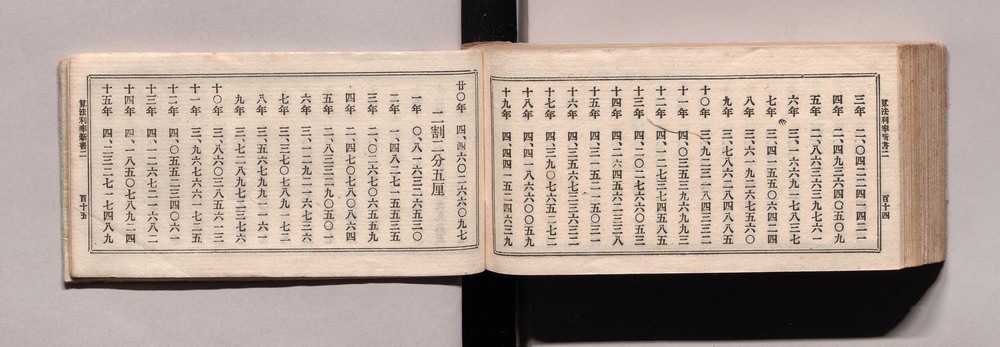 算法利率新書二 百十四
三年 二、〇四二二四一四二一
四年 二、四九三六四〇五〇九
五年 二、八六三六三九七六一
六年 三、一六六九一七八三七
七年 三、四一五五〇六四二四
八年 三、六一九二六七五六〇
九年 三、七八六二八四八八五
十〇年 三、九二三一八四三三二
十一年 四、〇三五三九六九九三
十二年 四、一二七三七四五八五
十三年 四、二〇二七六六〇五三
十四年 四、二六四五六二三三八
十五年 四、三一五二一五〇三一
十六年 四、三五六七三三六三二
十七年 四、三九〇七六五二七二
十八年 四、四一八六六〇〇五九
十九年 四、四四一五二四六三九
廿〇年 四、四六〇二六六〇九七
二割二分五厘
一年 〇、八一六三二六五三〇
二年 一、四八二七一五五三五
三年 二、〇二六七〇六五五九
四年 二、四七〇七八〇八六四
五年 二、八三三二九〇五〇一
六年 三、一二九二一六七三六
七年 三、三七〇七八九一七二
八年 三、五六七九九一一六一
九年 三、七二八九七二三七六
十〇年 三、八六〇三八五六一三
十一年 三、九六七六六一七二五
十二年 四、〇五五二三四〇六一
十三年 四、一二六七二一六八二
十四年 四、一八五〇七八九二四
十五年 四、二三二七一七四八九
算法利率新書二 百十五